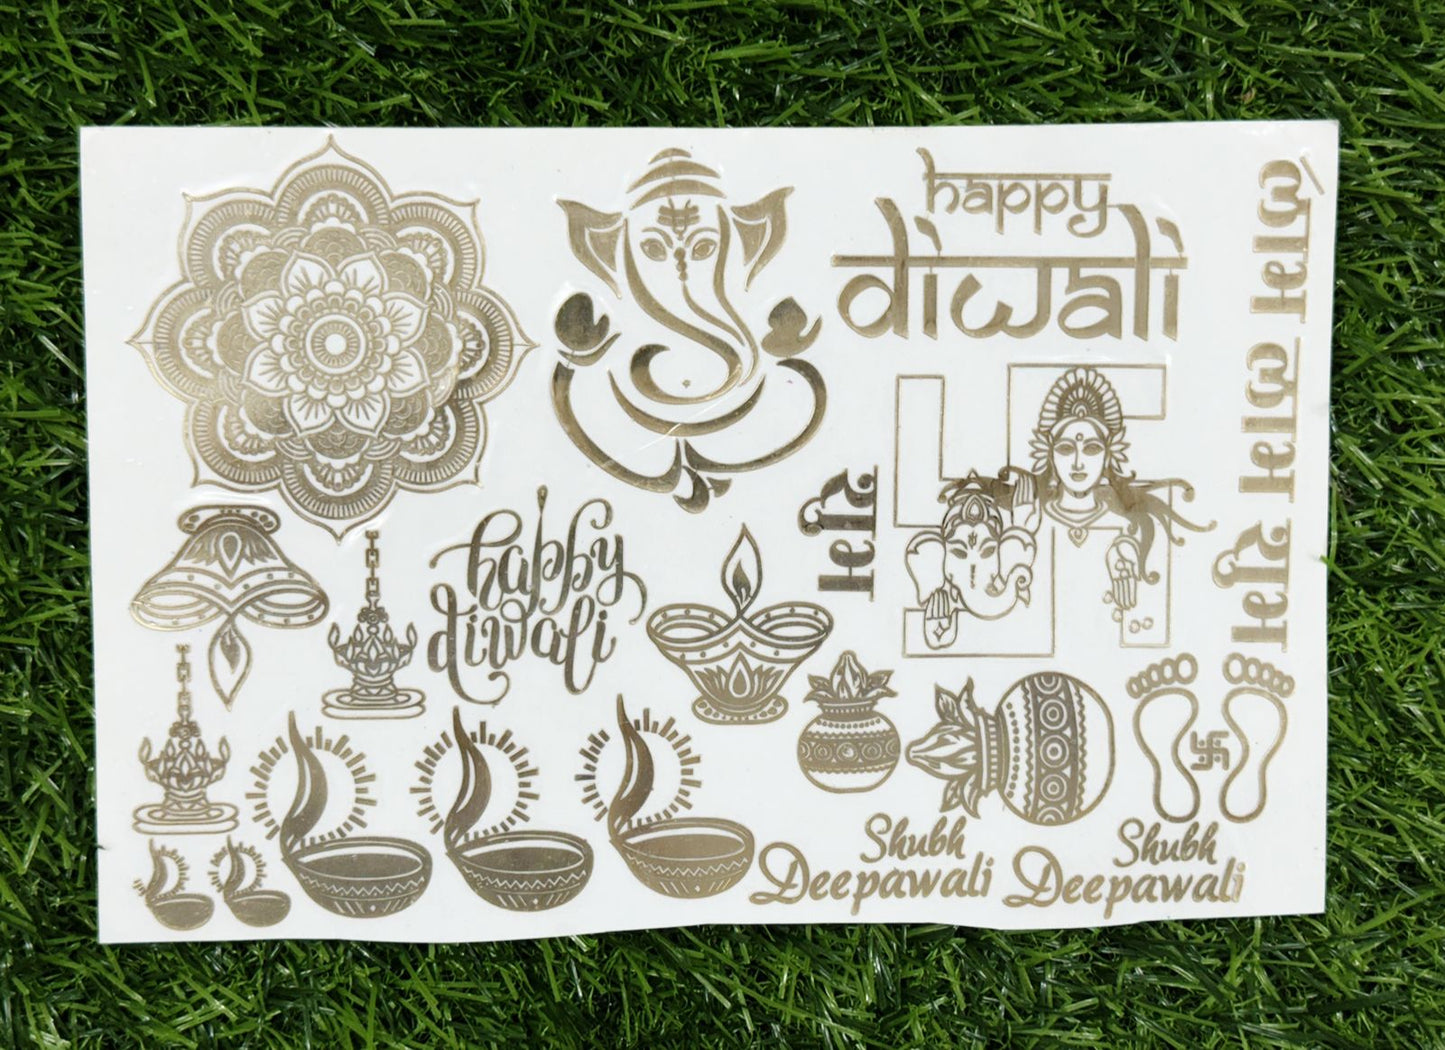 happy
diwali
लाभ
लाभ
शुभ
शुभ
happy
diwali
Shubh
Deepawali
Shubh
Deepawali